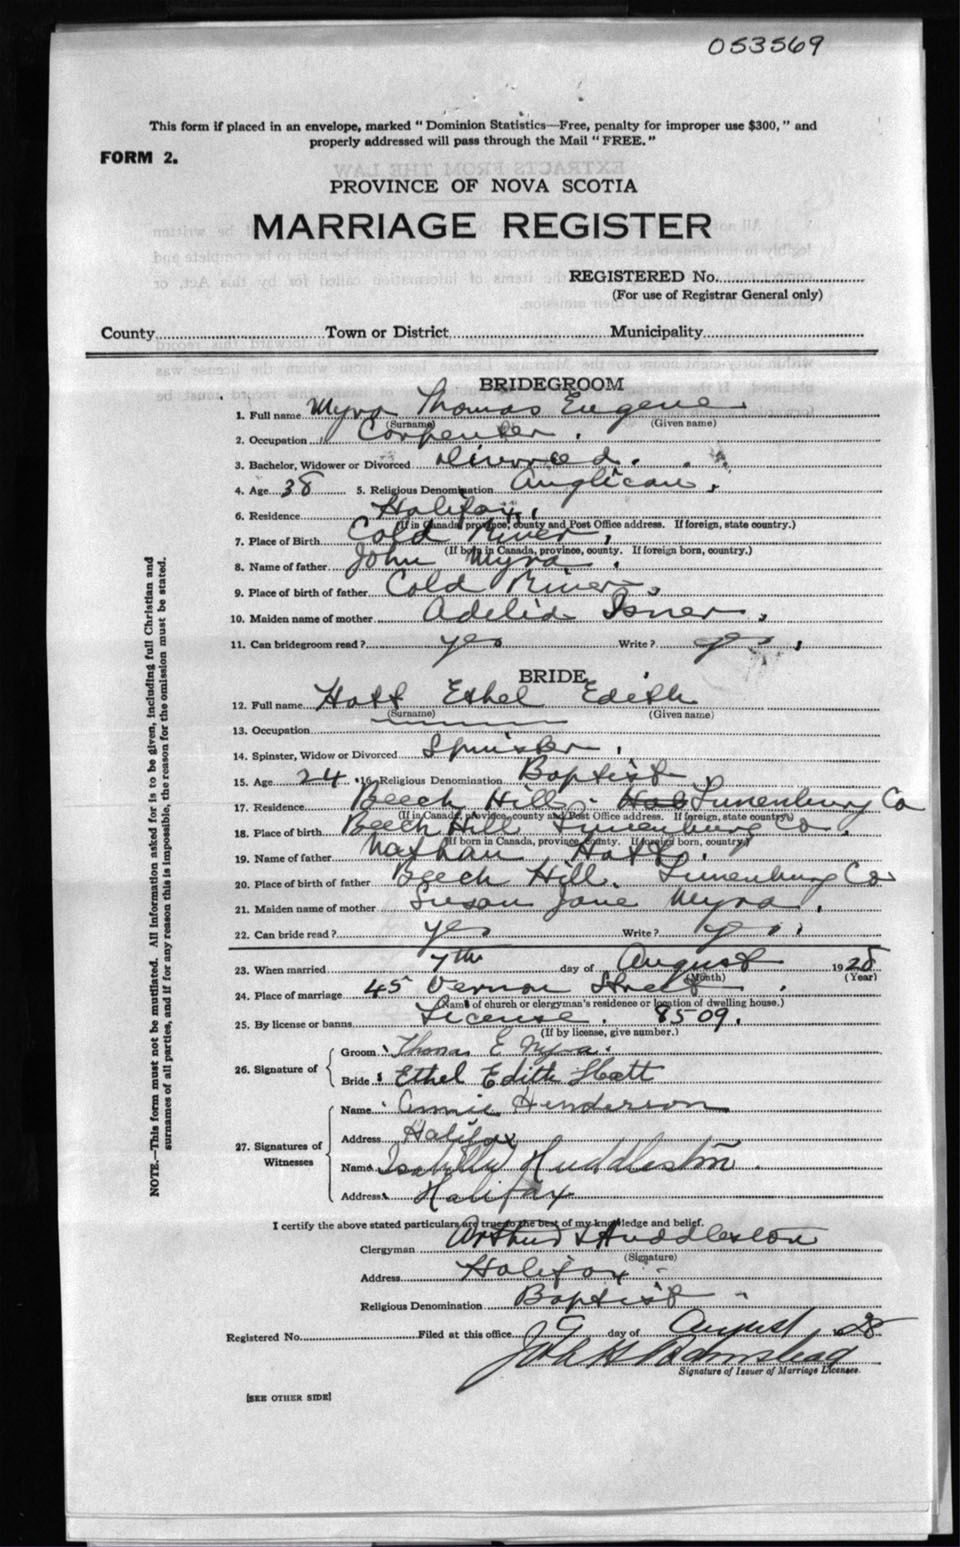 053569
This form if placed in an envelope, marked "Dominion Statistics—Free, penalty for improper use $300," and
properly addressed will pass through the Mail "FREE."
FORM 2.
PROVINCE OF NOVA SCOTIA
MARRIAGE REGISTER
REGISTERED No.
(For use of Registrar General only)
County Town or District Municipality
BRIDEGROOM
1. Full name Myra Thomas Eugene
(Surname) (Given name)
2. Occupation Carpenter.
3. Bachelor, Widower or Divorced Divorced.
4. Age 38 5. Religious Denomination Anglican.
6. Residence Halifax.
(If in Canada, province, county and Post Office address. If foreign, state country.)
7. Place of Birth Cold River,
(If born in Canada, province, county. If foreign born, country.)
8. Name of father John Myra.
9. Place of birth of father Cold River.
10. Maiden name of mother Adelid Isner,
11. Can bridegroom read? yes Write? yes
BRIDE
12. Full name Hatt Ethel Edith
(Surname) (Given name)
13. Occupation
14. Spinster, Widow or Divorced Spinster.
15. Age 24 16. Religious Denomination Baptist
17. Residence Beech Hill. Lunenburg Co
(If in Canada, province, county and Post Office address. If foreign, state country)
18. Place of birth Beech Hill Lunenburg Co.
(If born in Canada, province, county. If foreign born, country)
19. Name of father Nathan Hatt.
20. Place of birth of father Beech Hill. Lunenburg Co
21. Maiden name of mother Susan Jane Myra.
22. Can bride read? yes Write? yes
23. When married 7th day of August 1928
(Month) (Year)
24. Place of marriage 45 Vernon Street.
(Name of church or clergyman's residence or location of dwelling house.)
25. By license or banns License. 8509.
(If by license, give number.)
26. Signature of
Groom Thomas E Myra.
Bride Ethel Edith Hatt
27. Signatures of Witnesses
Name Annie Henderson
Address Halifax
Name Huddleston.
Address Halifax
I certify the above stated particulars are true to the best of my knowledge and belief.
Clergyman Arthur Huddleston
(Signature)
Address Halifax
Religious Denomination Baptist
Registered No. Filed at this office 9 day of August 1928
Signature of Issuer of Marriage Licenses.
[SEE OTHER SIDE]
NOTE.—This form must not be mutilated. All information asked for is to be given, including full Christian and
surnames of all parties, and if for any reason this is impossible, the reason for the omission must be stated.